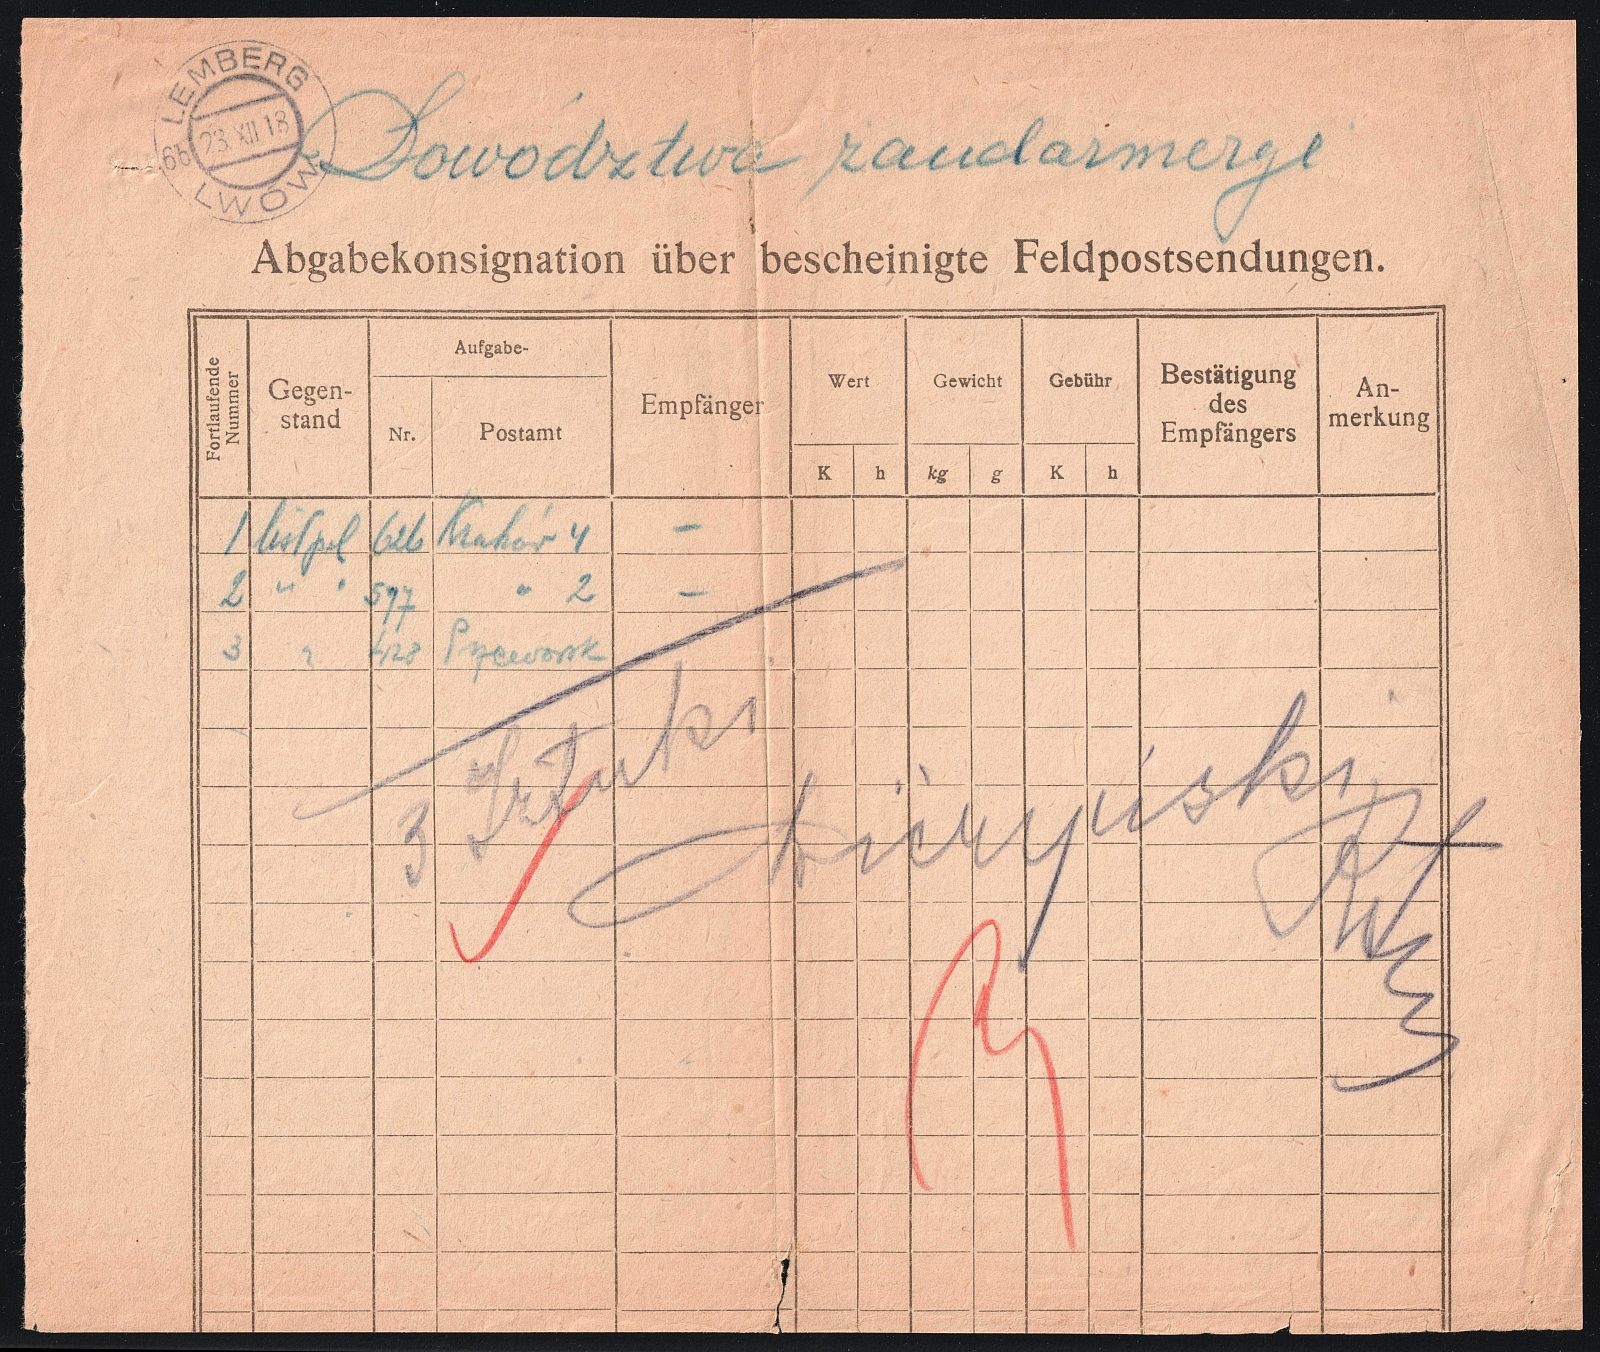 LEMBERG
6b 23.XII 18
LWÓW
Dowództwo żandarmerge
Abgabekonsignation über bescheinigte Feldpostsendungen.
Fortlaufende Nummer
Gegen-
stand
Aufgabe-
Nr.
Postamt
Empfänger
Wert
K h
Gewicht
kg g
Gebühr
K h
Bestätigung
des
Empfängers
An-
merkung
1 list pol 626 Kraków 4 –
2 " " 597 " 2 –
3 " 428 Przeworsk
3 Sztuki